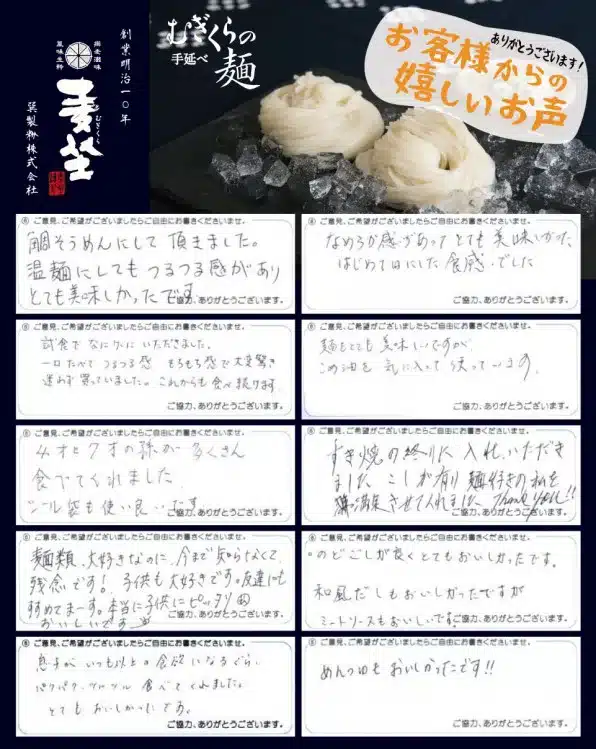 創業明治一〇年
巽製粉株式会社
麦坐
むぎくら
むぎくらの
手延べ
麺
ありがとうございます!
お客様からの
嬉しいお声
ご意見、ご希望がございましたらご自由にお書きくださいませ。
鯛そうめんにして頂きました。
温麺にしてもつるつる感があり
とても美味しかったです
ご協力、ありがとうございます。
ご意見、ご希望がございましたらご自由にお書きくださいませ。
なめらか感があってとても美味しかった
はじめて口にした食感でした
ご協力、ありがとうございます。
ご意見、ご希望がございましたらご自由にお書きくださいませ。
試食でなにげにいただきました。
一口たべてつるつる感 もちもち感で大変驚き
迷わず買っていました。これからも食べ続けます
ご協力、ありがとうございます。
ご意見、ご希望がございましたらご自由にお書きくださいませ。
麺もとても美味しいですが
この油を気に入って使っています。
ご協力、ありがとうございます。
ご意見、ご希望がございましたらご自由にお書きくださいませ。
4才と9才の孫が多くさん
食べてくれました
シール袋も使い良いです
ご協力、ありがとうございます。
ご意見、ご希望がございましたらご自由にお書きくださいませ。
すき焼の終りに入れいただき
ました こしが有り麺好きの私を
満足させてくれました Thank you!!
ご意見、ご希望がございましたらご自由にお書きくださいませ。
麺類、大好きなのに、今まで知らなくて
残念です! 子供も大好きです。友達にも
すすめてまーす。本当に子供にピッタリ
おいしいです
ご協力、ありがとうございます。
ご意見、ご希望がございましたらご自由にお書きくださいませ。
のどごしが良くとてもおいしかったです。
和風だしもおいしかったですが
ミートソースもおいしいです
ご協力、ありがとうございます。
ご意見、ご希望がございましたらご自由にお書きくださいませ。
息子がいつも以上の食欲になるぐらい
パクパク・ツルツル 食べてくれました。
とてもおいしかったです。
ご協力、ありがとうございます。
ご意見、ご希望がございましたらご自由にお書きくださいませ。
めんつゆもおいしかったです!!
ご協力、ありがとうございます。